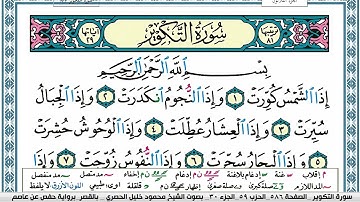 ترتيبها ٨١
سُورَةُ التَّكْوِيرِ
آياتها ٢٩
بِسْمِ اللَّهِ الرَّحْمَٰنِ الرَّحِيمِ
إِذَا الشَّمْسُ كُوِّرَتْ ١ وَإِذَا النُّجُومُ انكَدَرَتْ ٢ وَإِذَا الْجِبَالُ
سُيِّرَتْ ٣ وَإِذَا الْعِشَارُ عُطِّلَتْ ٤ وَإِذَا الْوُحُوشُ حُشِرَتْ
٥ وَإِذَا الْبِحَارُ سُجِّرَتْ ٦ وَإِذَا النُّفُوسُ زُوِّجَتْ ٧ وَإِذَا
سورة التكوير - الصفحة ٥٨٦ - الحزب ٥٩ - الجزء ٣٠ - بصوت الشيخ محمود خليل الحصري - بالقصر - برواية حفص عن عاصم